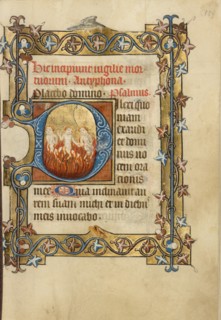 Hic incipiunt vigilie mor
tuorum. Antyphona.
Placebo domino. Psalmus.
Dilexi quo
niam
exaudi
et domi
nus vo
cem ora
cionis
mee. Quia inclinavit au
rem suam michi et in diebus
meis invocabo.